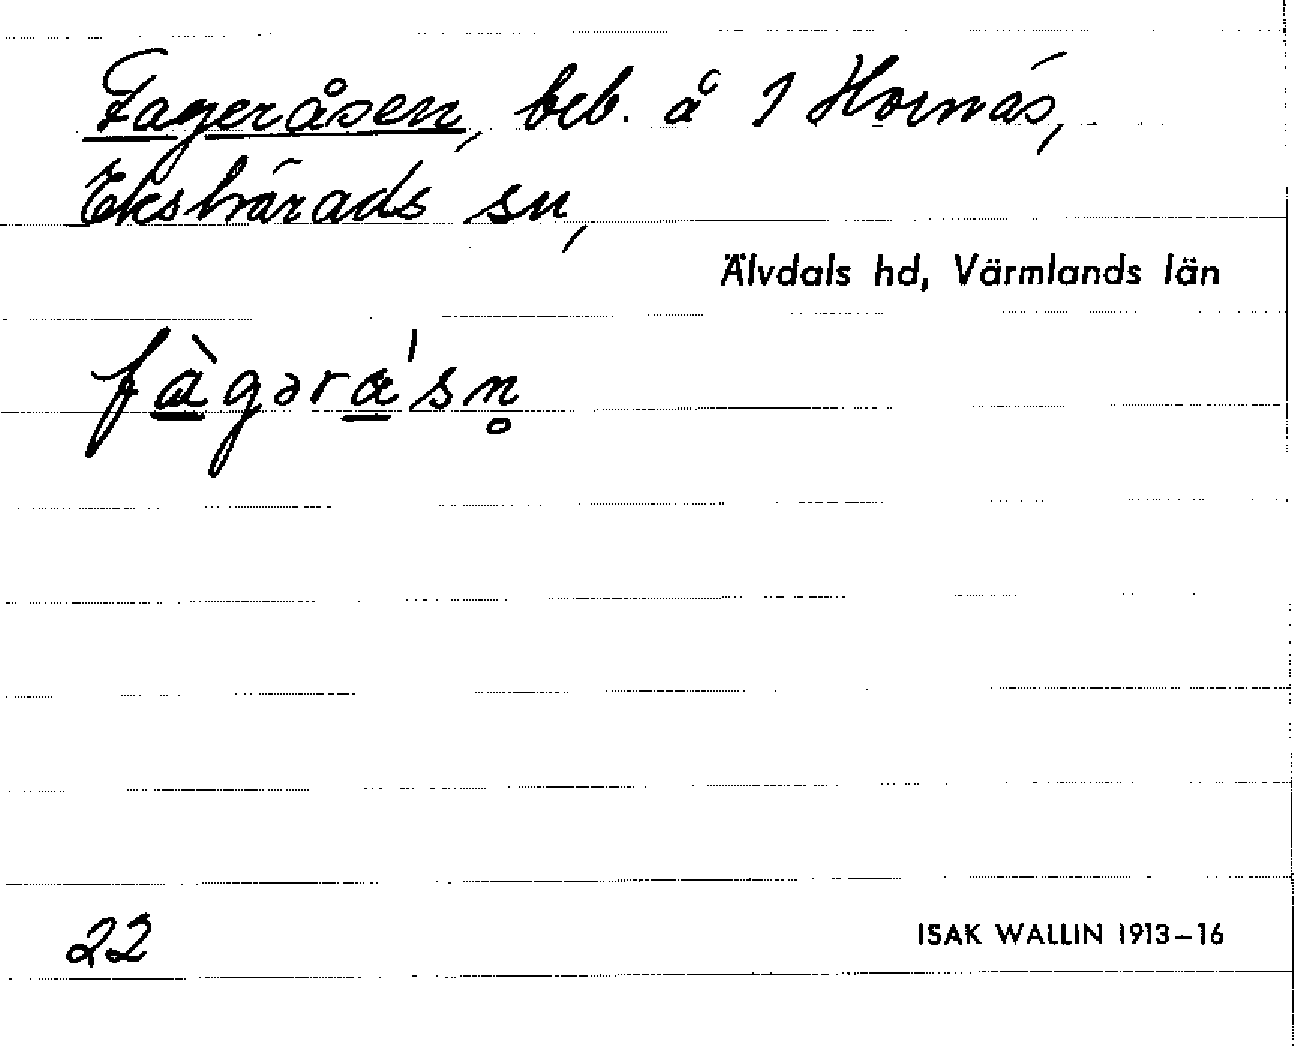 Fageråsen, beb. å 1 Hornäs,
Ekshärads sn,
Älvdals hd, Värmlands län
fàgəra'sn̥
22
ISAK WALLIN 1913–16